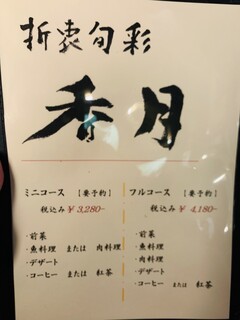 折衷旬彩
香月
ミニコース 【要予約】
税込み ¥3,280~
・前菜
・魚料理 または 肉料理
・デザート
・コーヒー または 紅茶
フルコース 【要予約】
税込み ¥4,180~
・前菜
・魚料理
・肉料理
・デザート
・コーヒー または 紅茶